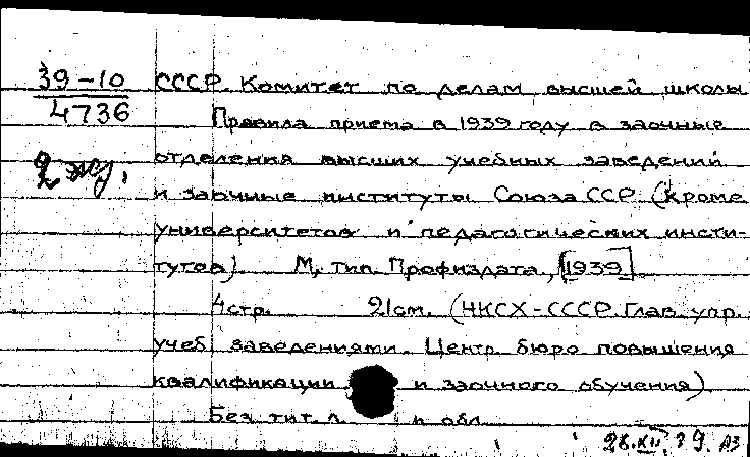 39-10
4736
2 экз.
СССР. Комитет по делам высшей школы
Правила приема в 1939 году в заочные
отделения высших учебных заведений
и заочные институты Союза ССР (кроме
университетов и педагогических инсти-
тутов). М, тип. Профиздата, [1939]
4 стр. 21 см. (НКСХ-СССР. Глав. упр.
учеб. заведениями. Центр. бюро повышения
квалификации и заочного обучения)
Без тит. л. и обл.
28.XII.39. АЗ